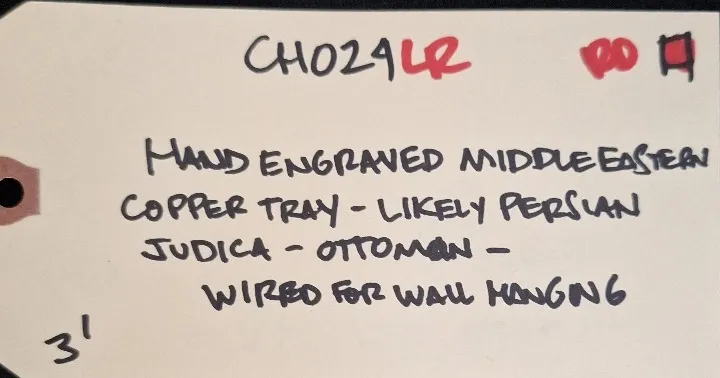 CH024LR RD
HAND ENGRAVED MIDDLE EASTERN
COPPER TRAY - LIKELY PERSIAN
JUDICA - OTTOMAN -
WIRED FOR WALL HANGING
3'